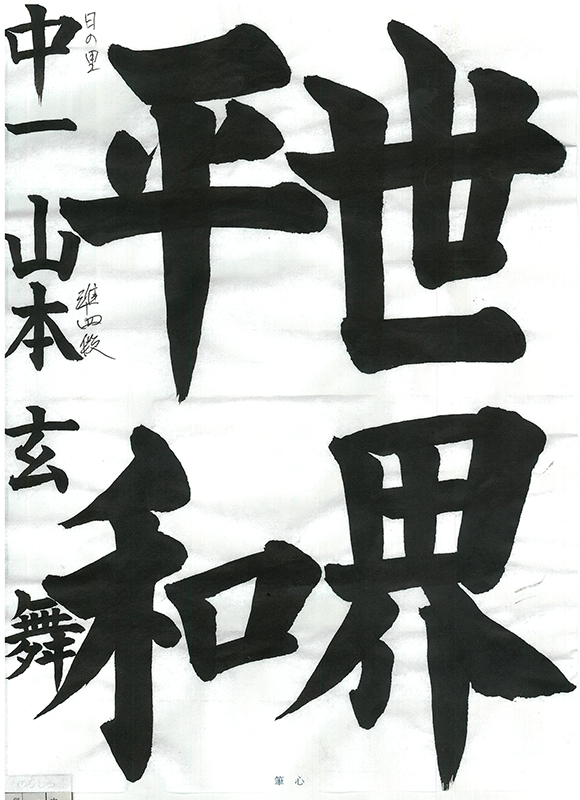 世界
平和
日の里
準四段
中一 山本玄舞
筆心